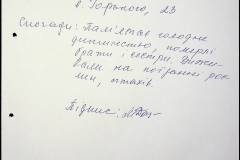 в. Горького, 23
Спогади: Пам'ятаю голодне
дитинство, померлі
брати і сестри. Вижи-
вали на подбанні рос-
ли, птахів.
Підпис: